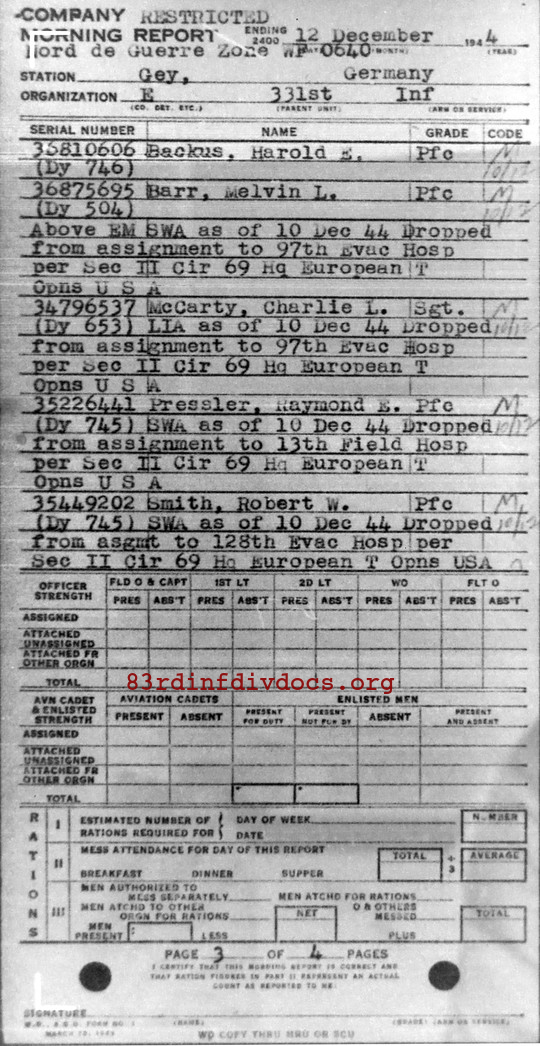 COMPANY RESTRICTED
MORNING REPORT ENDING 2400 12 December 1944
Nord de Guerre Zone WF 0640 (DAY) (MONTH) (YEAR)
STATION Gey, Germany
ORGANIZATION E 331st Inf
(CO. DET. ETC.) (PARENT UNIT) (ARM OR SERVICE)
SERIAL NUMBER NAME GRADE CODE
36810606 Backus, Harold E. Pfc M
(Dy 746) 10/12
36875695 Barr, Melvin L. Pfc M
(Dy 504) 10/12
Above EM SWA as of 10 Dec 44 Dropped
from assignment to 97th Evac Hosp
per Sec II Cir 69 Hq European T
Opns U S A
34796537 McCarty, Charlie L. Sgt. M
(Dy 653) LIA as of 10 Dec 44 Dropped 10/12
from assignment to 97th Evac Hosp
per Sec II Cir 69 Hq European T
Opns U S A
35226441 Pressler, Raymond E. Pfc M
(Dy 745) SWA as of 10 Dec 44 Dropped 10/12
from assignment to 13th Field Hosp
per Sec II Cir 69 Hq European T
Opns U S A
35449202 Smith, Robert W. Pfc M
(Dy 745) SWA as of 10 Dec 44 Dropped 10/12
from asgmt to 128th Evac Hosp per
Sec II Cir 69 Hq European T Opns USA
OFFICER STRENGTH FLD O & CAPT 1ST LT 2D LT WO FLT O
PRES ABS'T PRES ABS'T PRES ABS'T PRES ABS'T PRES ABS'T
ASSIGNED
ATTACHED UNASSIGNED
ATTACHED FR OTHER ORGN
TOTAL
83rdinfdivdocs.org
AVN CADET & ENLISTED STRENGTH AVIATION CADETS ENLISTED MEN
PRESENT ABSENT PRESENT FOR DUTY PRESENT NOT FOR DY ABSENT PRESENT AND ABSENT
ASSIGNED
ATTACHED UNASSIGNED
ATTACHED FR OTHER ORGN
TOTAL
RATIONS
I ESTIMATED NUMBER OF RATIONS REQUIRED FOR { DAY OF WEEK DATE NUMBER
II MESS ATTENDANCE FOR DAY OF THIS REPORT TOTAL ÷ 3 AVERAGE
BREAKFAST DINNER SUPPER
III MEN AUTHORIZED TO MESS SEPARATELY MEN ATCHD FOR RATIONS
MEN ATCHD TO OTHER ORGN FOR RATIONS NET O & OTHERS MESSED TOTAL
MEN PRESENT LESS PLUS
PAGE 3 OF 4 PAGES
I CERTIFY THAT THIS MORNING REPORT IS CORRECT AND
THAT RATION FIGURES IN PART II REPRESENT AN ACTUAL
COUNT AS REPORTED TO ME.
SIGNATURE
W.D., A.G.O. FORM NO. 1 (NAME) (GRADE) (ARM OR SERVICE)
WD COPY THRU MRU OR SCU